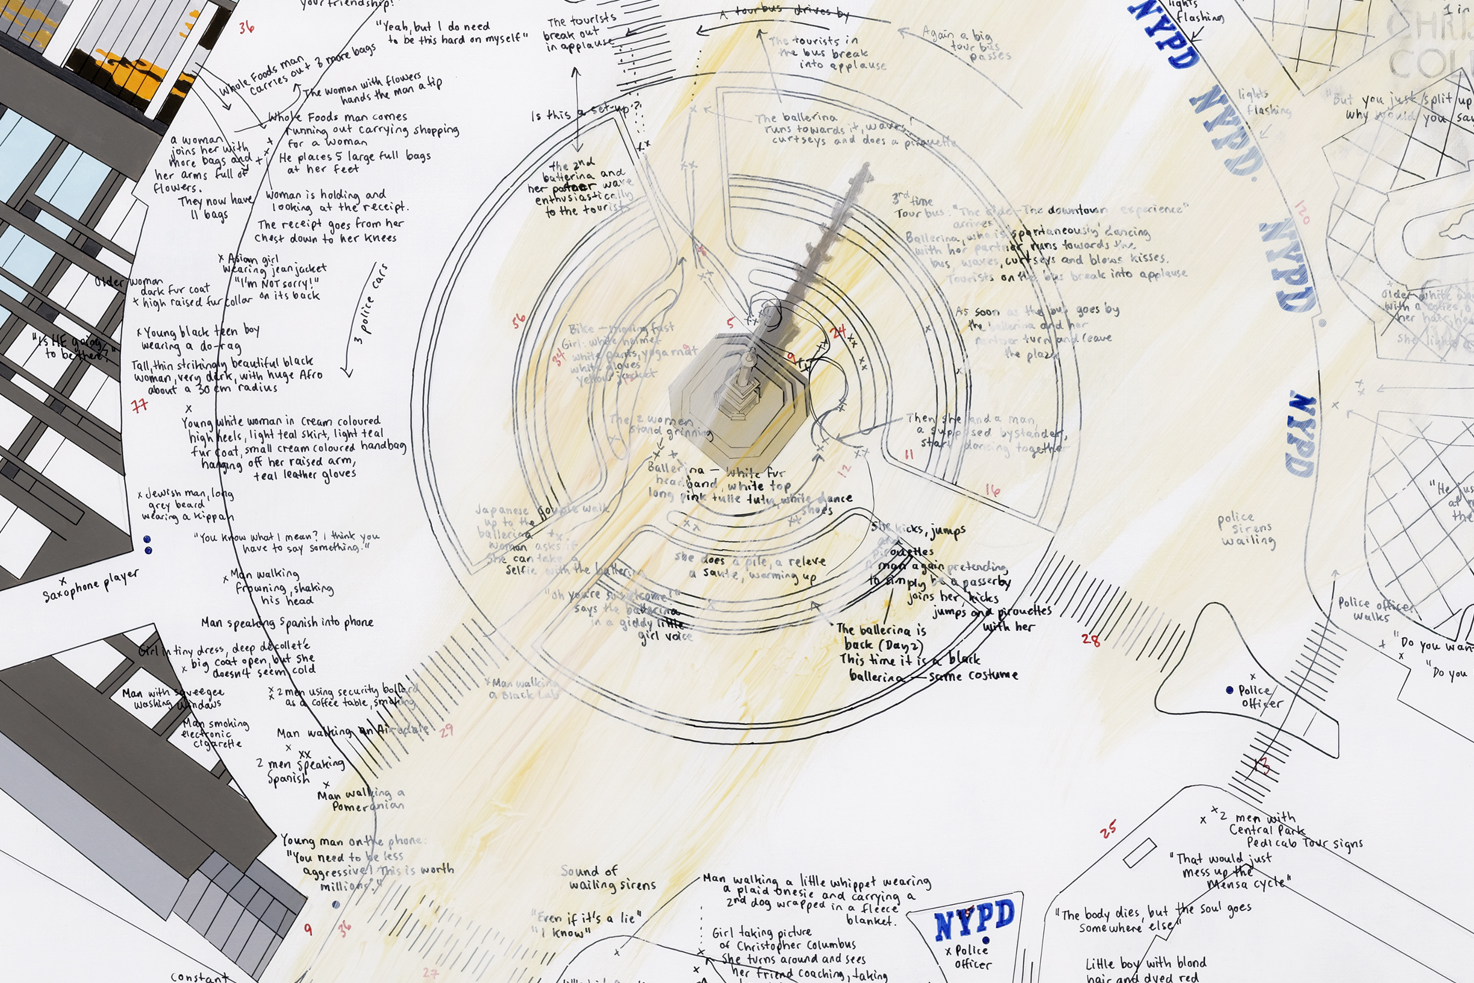 your friendship!"
36
"Yeah, but I do need
to be this hard on myself"
The tourists
break out
in applause
tour bus drives by
The tourists in
the bus break
into applause
Again a big
tour bus
passes
lights
flashing
NYPD
1 in
CHRIS
COLU
Whole Foods man
carries out 3 more bags
The woman with flowers
hands the man a tip
Whole Foods man comes
running out carrying shopping
for a woman
He places 5 large full bags
at her feet
a woman
joins her with
more bags and
her arms full of
flowers.
They now have
11 bags
Woman is holding and
looking at the receipt.
The receipt goes from her
chest down to her knees
Is this a set-up?
The 2nd
ballerina and
her partner wave
enthusiastically
to the tourists
The ballerina
runs towards it, waves,
curtseys and does a pirouette
NYPD
lights
flashing
"But you just split up
why would you
3rd time
Tour bus: "The ride - The downtown experience"
arrives
Ballerina, who is 'spontaneously' dancing
with her partner runs towards the
bus, waves, curtseys and blows kisses.
Tourists on the bus break into applause
120
NYPD
Asian girl
wearing jean jacket
"I'm NOT sorry!"
on its back
Older woman
dark fur coat
+ high raised fur collar
3 police cars
"Is HE going
to be there?"
Young black teen boy
wearing a do-rag
Tall, thin strikingly beautiful black
woman, very dark, with huge Afro
about a 30 cm radius
77
56
34
Bike - moving fast
Girl: white helmet
white pants, yoga mat
white gloves
yellow jacket
5
24
9
As soon as the bus goes by
the ballerina and her
partner turn and leave
the plaza
Older white
NYPD
Young white woman in cream coloured
high heels, light teal skirt, light teal
fur coat, small cream coloured handbag
hanging off her raised arm,
teal leather gloves
The 2 women
stand grinning
Then she and a man,
a supposed bystander,
start dancing together
11
12
16
Ballerina - white fur
headband, white top
long pink tulle tutu, white dance
shoes
Jewish man, long
grey beard
wearing a kippah
Japanese couple walk
up to the
ballerina
woman asks if
she can take a
selfie with the ballerina
"Oh you're so welcome!"
says the ballerina
in a giddy little
girl voice
She does a plie, a releve
a saute, warming up
She kicks, jumps
pirouettes
A man again pretending
to simply be a passerby
joins her kicks
jumps and pirouettes
with her
police
sirens
wailing
"He
"You know what I mean? I think you
have to say something."
Saxophone player
Man walking
frowning, shaking
his head
Man speaking Spanish into phone
The ballerina is
back (Day 2)
This time it is a black
ballerina - same costume
28
Police officer
walks
"Do you want
"Do you
Police
officer
Girl in tiny dress, deep décolleté
big coat open, but she
doesn't seem cold
Man with squeegee
washing windows
Man smoking
electronic
cigarette
2 men using security bollard
as a coffee table, smoking
Man walking
a Black Lab
Man walking an Airedale
29
2 men speaking
Spanish
Man walking a
Pomeranian
13
25
2 men with
Central Park
Pedicab Tour signs
"That would just
mess up the
Mensa cycle"
Young man on the phone:
"You need to be less
aggressive! This is worth
millions!"
9
36
27
Sound of
wailing sirens
"Even if it's a lie"
"I know"
Man walking a little whippet wearing
a plaid onesie and carrying a
2nd dog wrapped in a fleece
blanket.
Girl taking picture
of Christopher Columbus
She turns around and sees
her friend coaching, taking
NYPD
Police
officer
"The body dies, but the soul goes
somewhere else"
Little boy with blond
hair and dyed red
constant